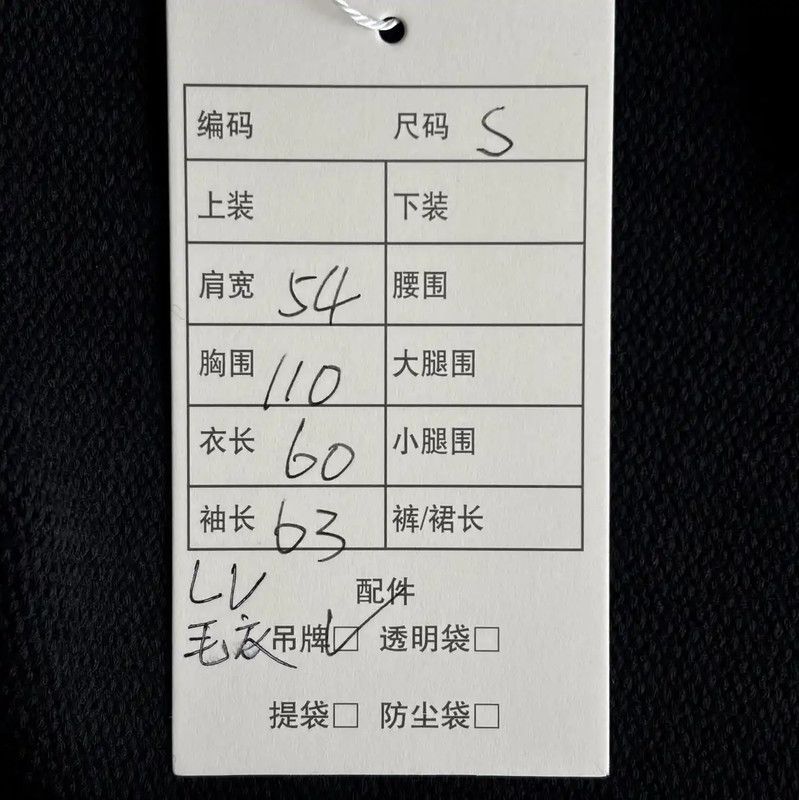 编码 尺码 S
上装 下装
肩宽 54 腰围
胸围 110 大腿围
衣长 60 小腿围
袖长 63 裤/裙长
LV 配件
毛衣 吊牌☑ 透明袋□
提袋□ 防尘袋□